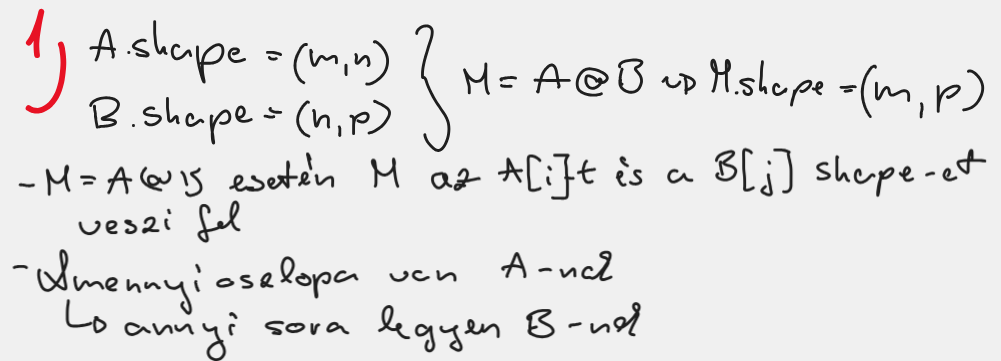 1) A.shape = (m,n)
B.shape = (n,p) } M = A @ B ⇝ M.shape = (m, p)
- M = A @ B esetén M az A[i]-t és a B[j] shape-et
veszi fel
- Amennyi oszlopa van A-nak
↳ annyi sora legyen B-nek